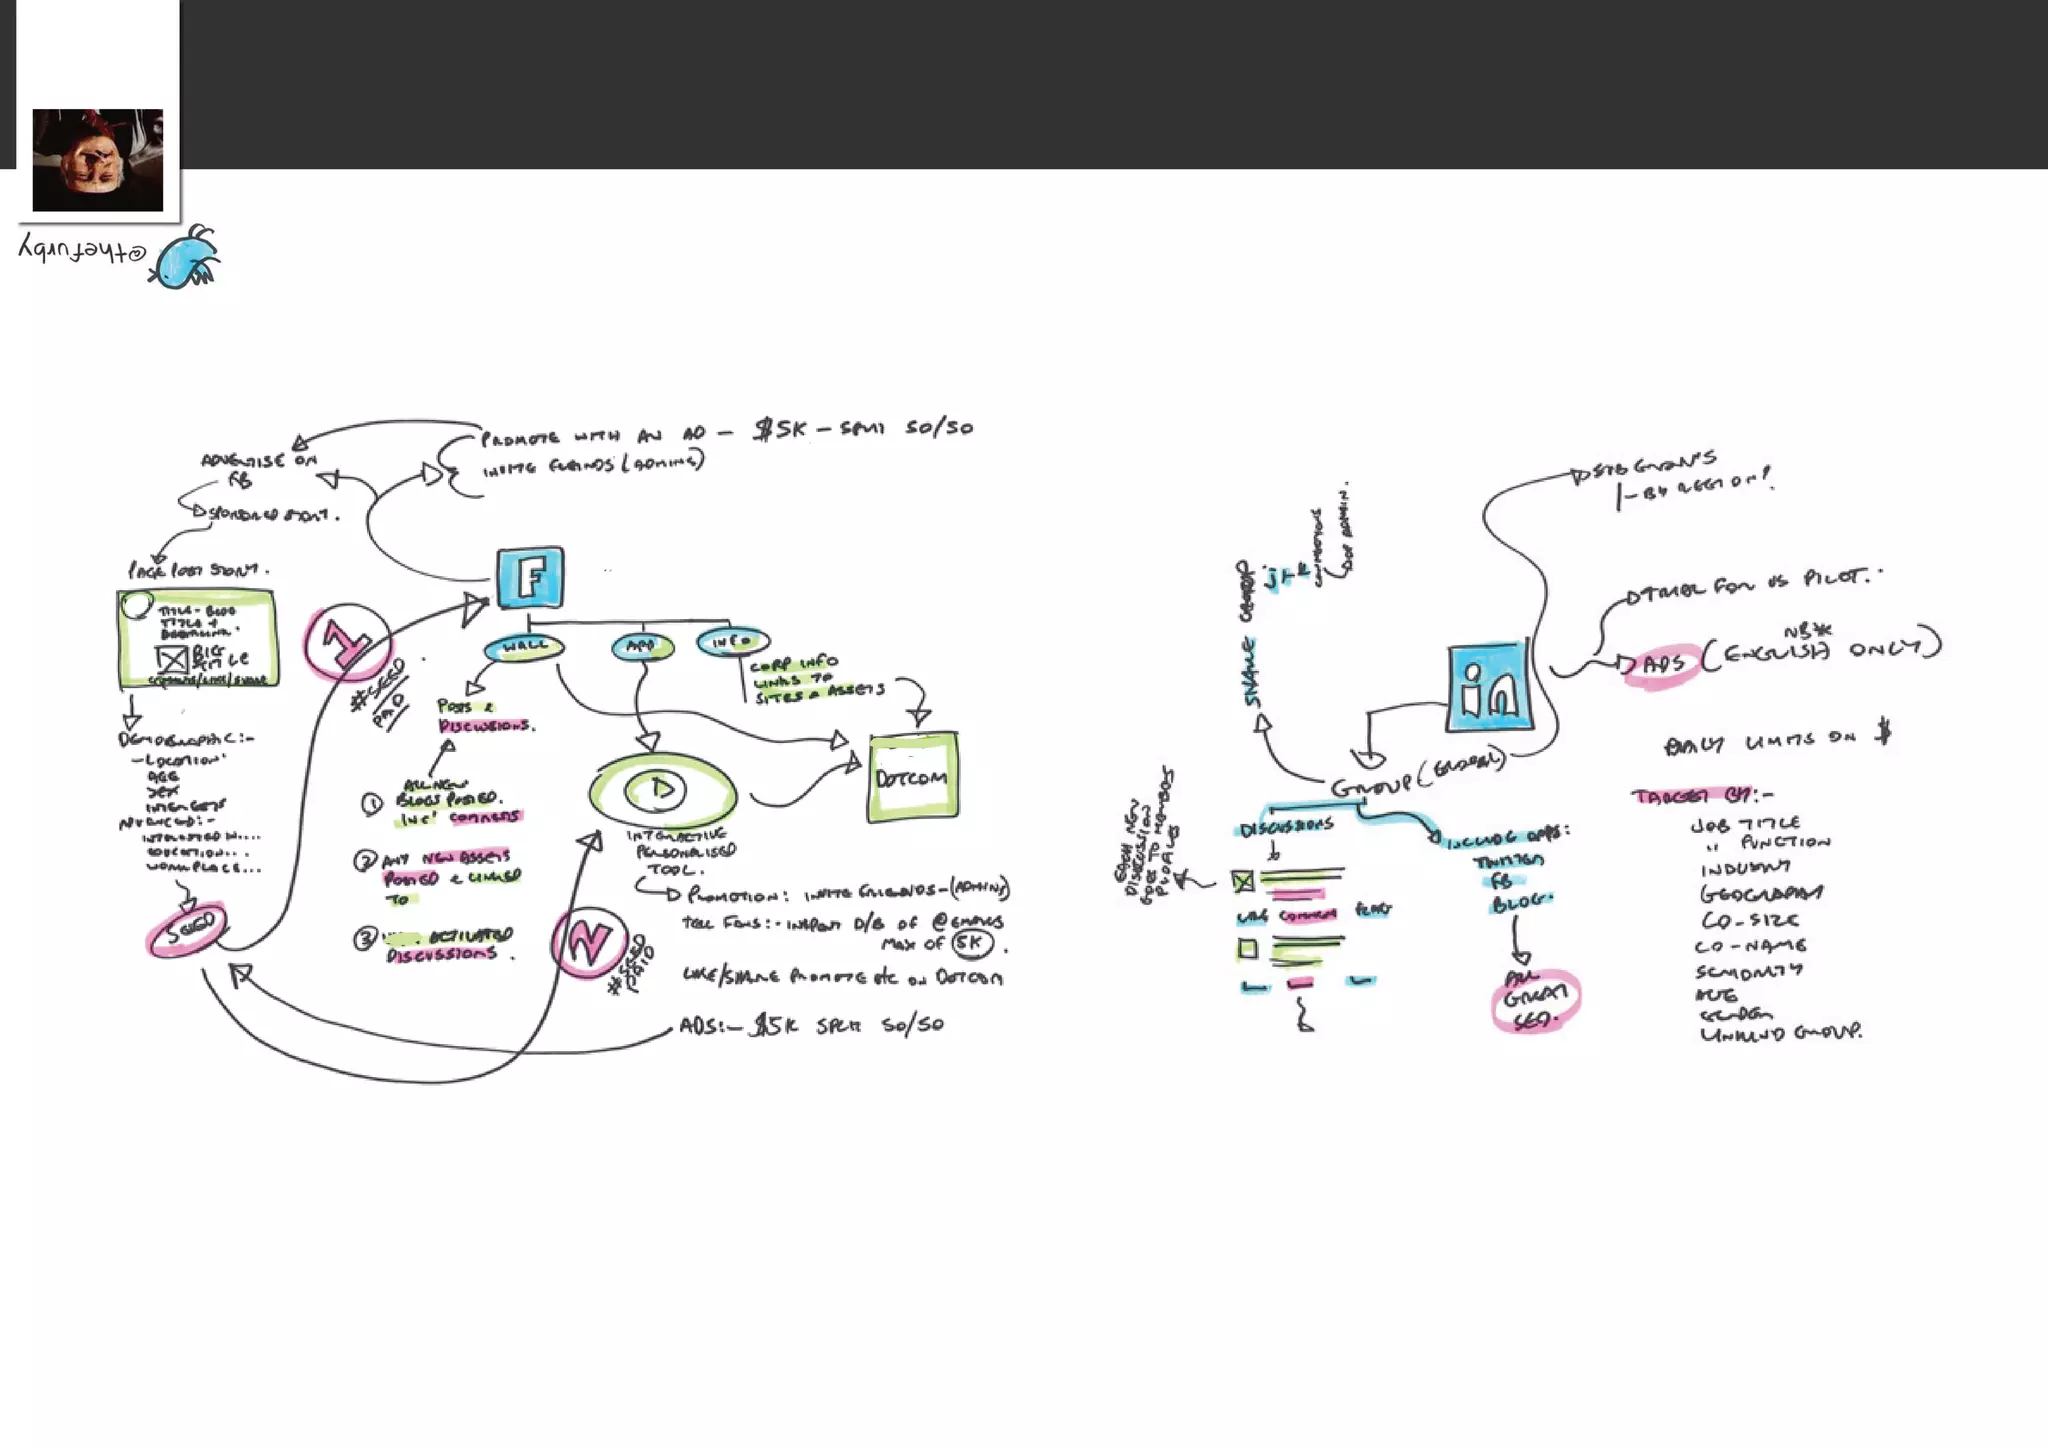 @thefurby
PROMOTE WITH AN AD - $5K - SPLIT 50/50
INVITE FRIENDS (ADMINS)
ADVERTISE ON
FB
SPONSORED STORY.
PAGE POST STORY.
TITLE - BLOG
TITLE +
BIG
TITLE
COMMENT/LIKE/SHARE
DEMOGRAPHIC:-
- LOCATION
AGE
SEX
INTERESTS
ADVANCED:-
INTERESTED IN....
EDUCATION...
WORKPLACE...
SEED
1
#SEED
PAID
F
WALL
APP
INFO
CORP INFO
LINKS TO
SITES & ASSETS
POSTS &
DISCUSSIONS.
① ALL NEW
BLOGS POSTED.
INC' COMMENTS
② ANY NEW ASSETS
POSTED & LINKED
TO
③ ACTIVATED
DISCUSSIONS.
DOTCOM
INTERACTIVE
PERSONALISED
TOOL.
PROMOTION: INVITE FRIENDS - (ADMINS)
TELL FANS:- IMPORT D/B OF @EMAILS
MAX OF 5K.
LIKE/SHARE PROMOTE ETC ON DOTCOM
ADS:- $5K SPLIT 50/50
2
#SEED
PAID
SUB GROUP'S
- BY REGION?
TRIAL FOR US PILOT..
NB*
ADS (ENGLISH ONLY)
in
DAILY LIMITS ON $
GROUP (GLOBAL)
SHARE GROUP
DISCUSSIONS
EACH NEW
DISCUSSION
GOES TO MEMBERS
PROFILES
LIKE COMMENT FLAG
INCLUDE APPS:
TWITTER
FB
BLOG.
ALL
GREAT
SEO.
TARGET BY:-
JOB TITLE
" FUNCTION
INDUSTRY
GEOGRAPHY
CO-SIZE
CO-NAME
SENIORITY
AGE
GENDER
LINKED GROUP.